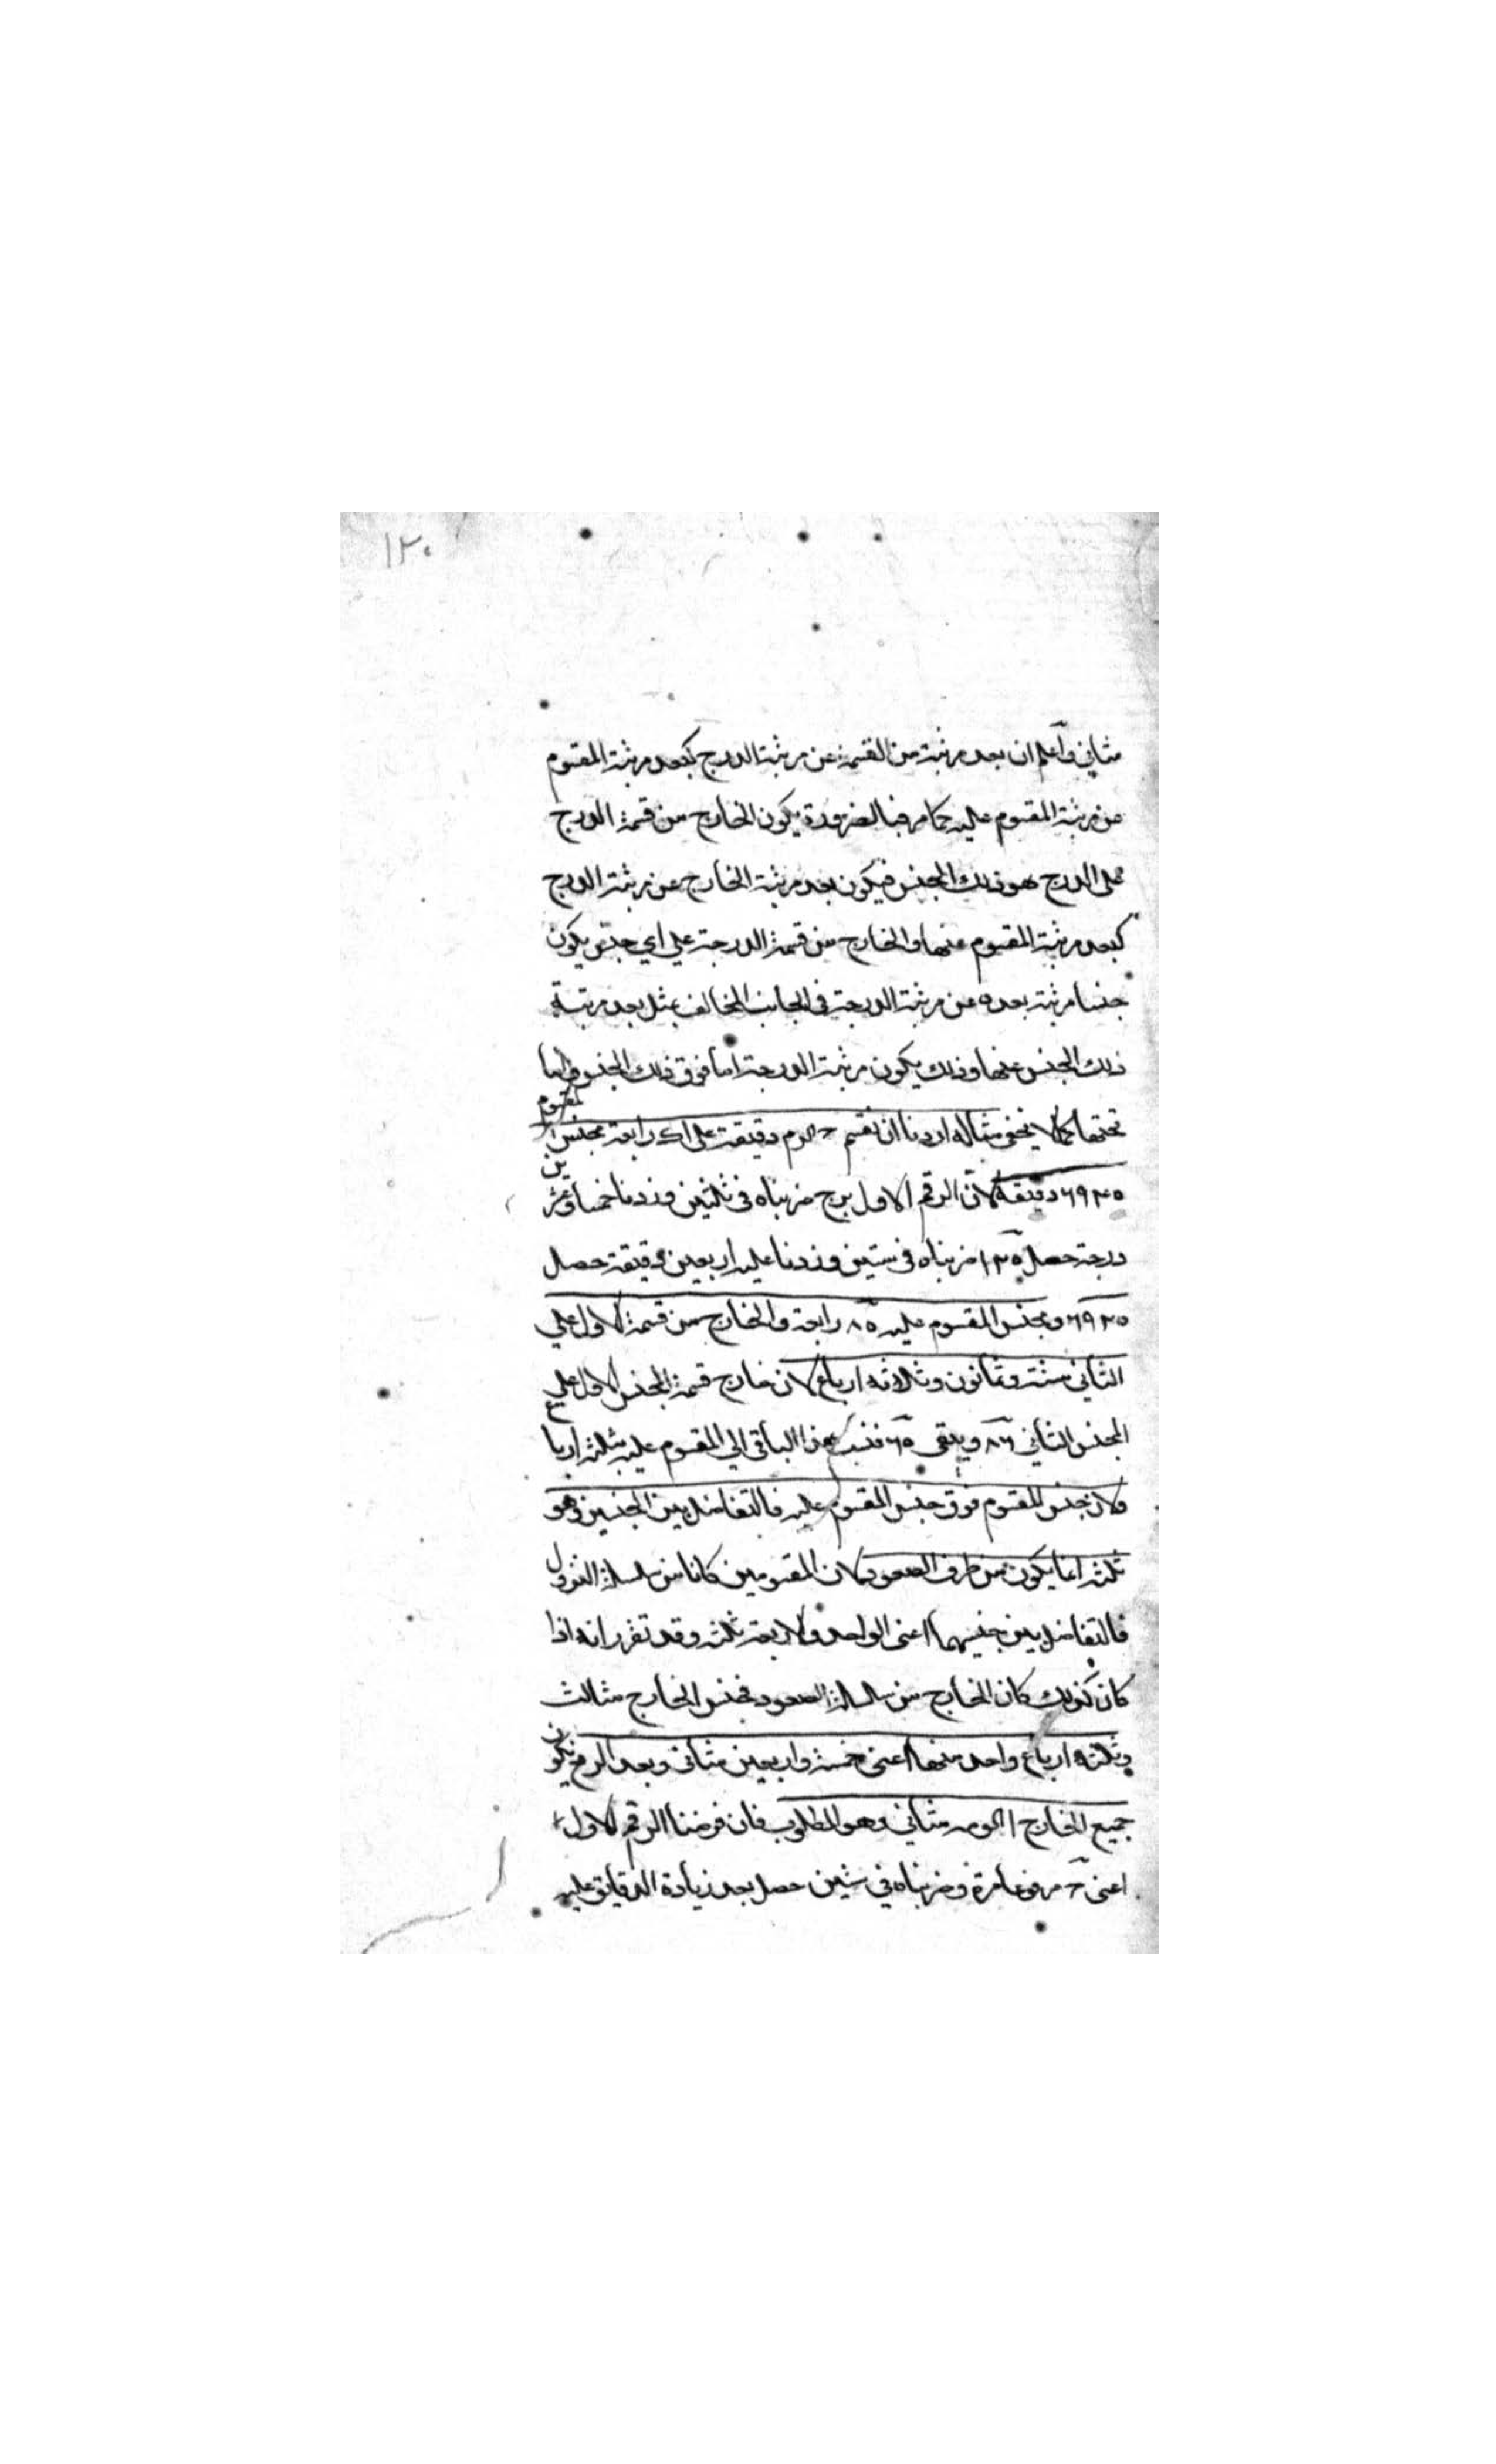 ١٢٠
مثاني واعلم ان بعد مرتبة من القسمة عن مرتبة الدرج كبعد مرتبة المقسوم
عن مرتبة المقسوم عليه كما مر فبالضرورة يكون الخارج من قسمة الدرج
على الدرج هو ذلك الجنس فيكون بعد مرتبة الخارج عن مرتبة الدرج
كبعد مرتبة المقسوم عنها والخارج من قسمة الدرجة علي اي جنس يكون
جنسا مرتبة بعده عن مرتبة الدرجة في الجانب المخالف بمثل بعد مرتبة
ذلك الجنس عنها وذلك يكون مرتبة الدرجة اما فوق ذلك الجنس واما
تحتها كما لا يخفى مثاله اردنا ان نقسم دقيقة على اك رابعة مجنس المقسوم
دقيقة لان الرقم الاول برج ضربناه في ثلثين وزدنا خمسا وعشرين
درجة حصل ضربناه في ستين وزدنا عليه اربعين دقيقة حصل
ومجنس المقسوم عليه ٨٠ رابعة والخارج من قسمة الاول علي
الثاني ستة وثمانون وثلاثة ارباع لان خارج قسمة الجنس الاول علي
الجنس الثاني ٨٦ ويبقى ٦٠ فنسب هذا الباقي الي المقسوم عليه ثلثة ارباع
ولان جنس المقسوم فوق جنس المقسوم عليه فالتفاضل بين الجنسين وهو
ثلثة انما يكون من طرف الصعود لان المقسومين كانا من سلسلة النزول
فالتفاضل بين جنسيهما اعني الواحد والاربعة ثلثة وقد تقرر انه اذا
كان كذلك كان الخارج من سلسلة الصعود فجنس الخارج مثالث
وثلثة ارباع واحد منها اعني خمسة واربعين مثاني وبعد الرفع يكون
جميع الخارج ا مثاني وهو المطلوب فان فرضنا الرقم الاول
اعني مرفوعا مرة وضربناه في ستين حصل بعد زيادة الدقايق عليه